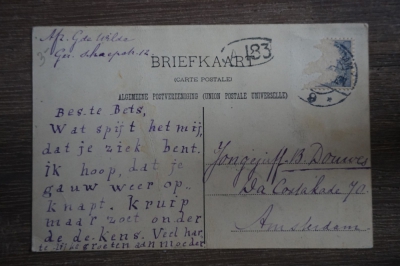 Afz. G de Wilde
Gu. schaepstr. 12
183
BRIEFKAART
(CARTE POSTALE)
ALGEMEENE POSTVEREENIGING (UNION POSTALE UNIVERSELLE)
Beste Bets,
Wat spijt het mij,
dat je ziek bent.
ik hoop, dat je
gauw weer op
knapt. Kruip
maar zoet onder
de de-kens. Veel har
te-lijke groeten aan moeder
Jongejuff. B. Douwes
Da Costakade 70
Amsterdam